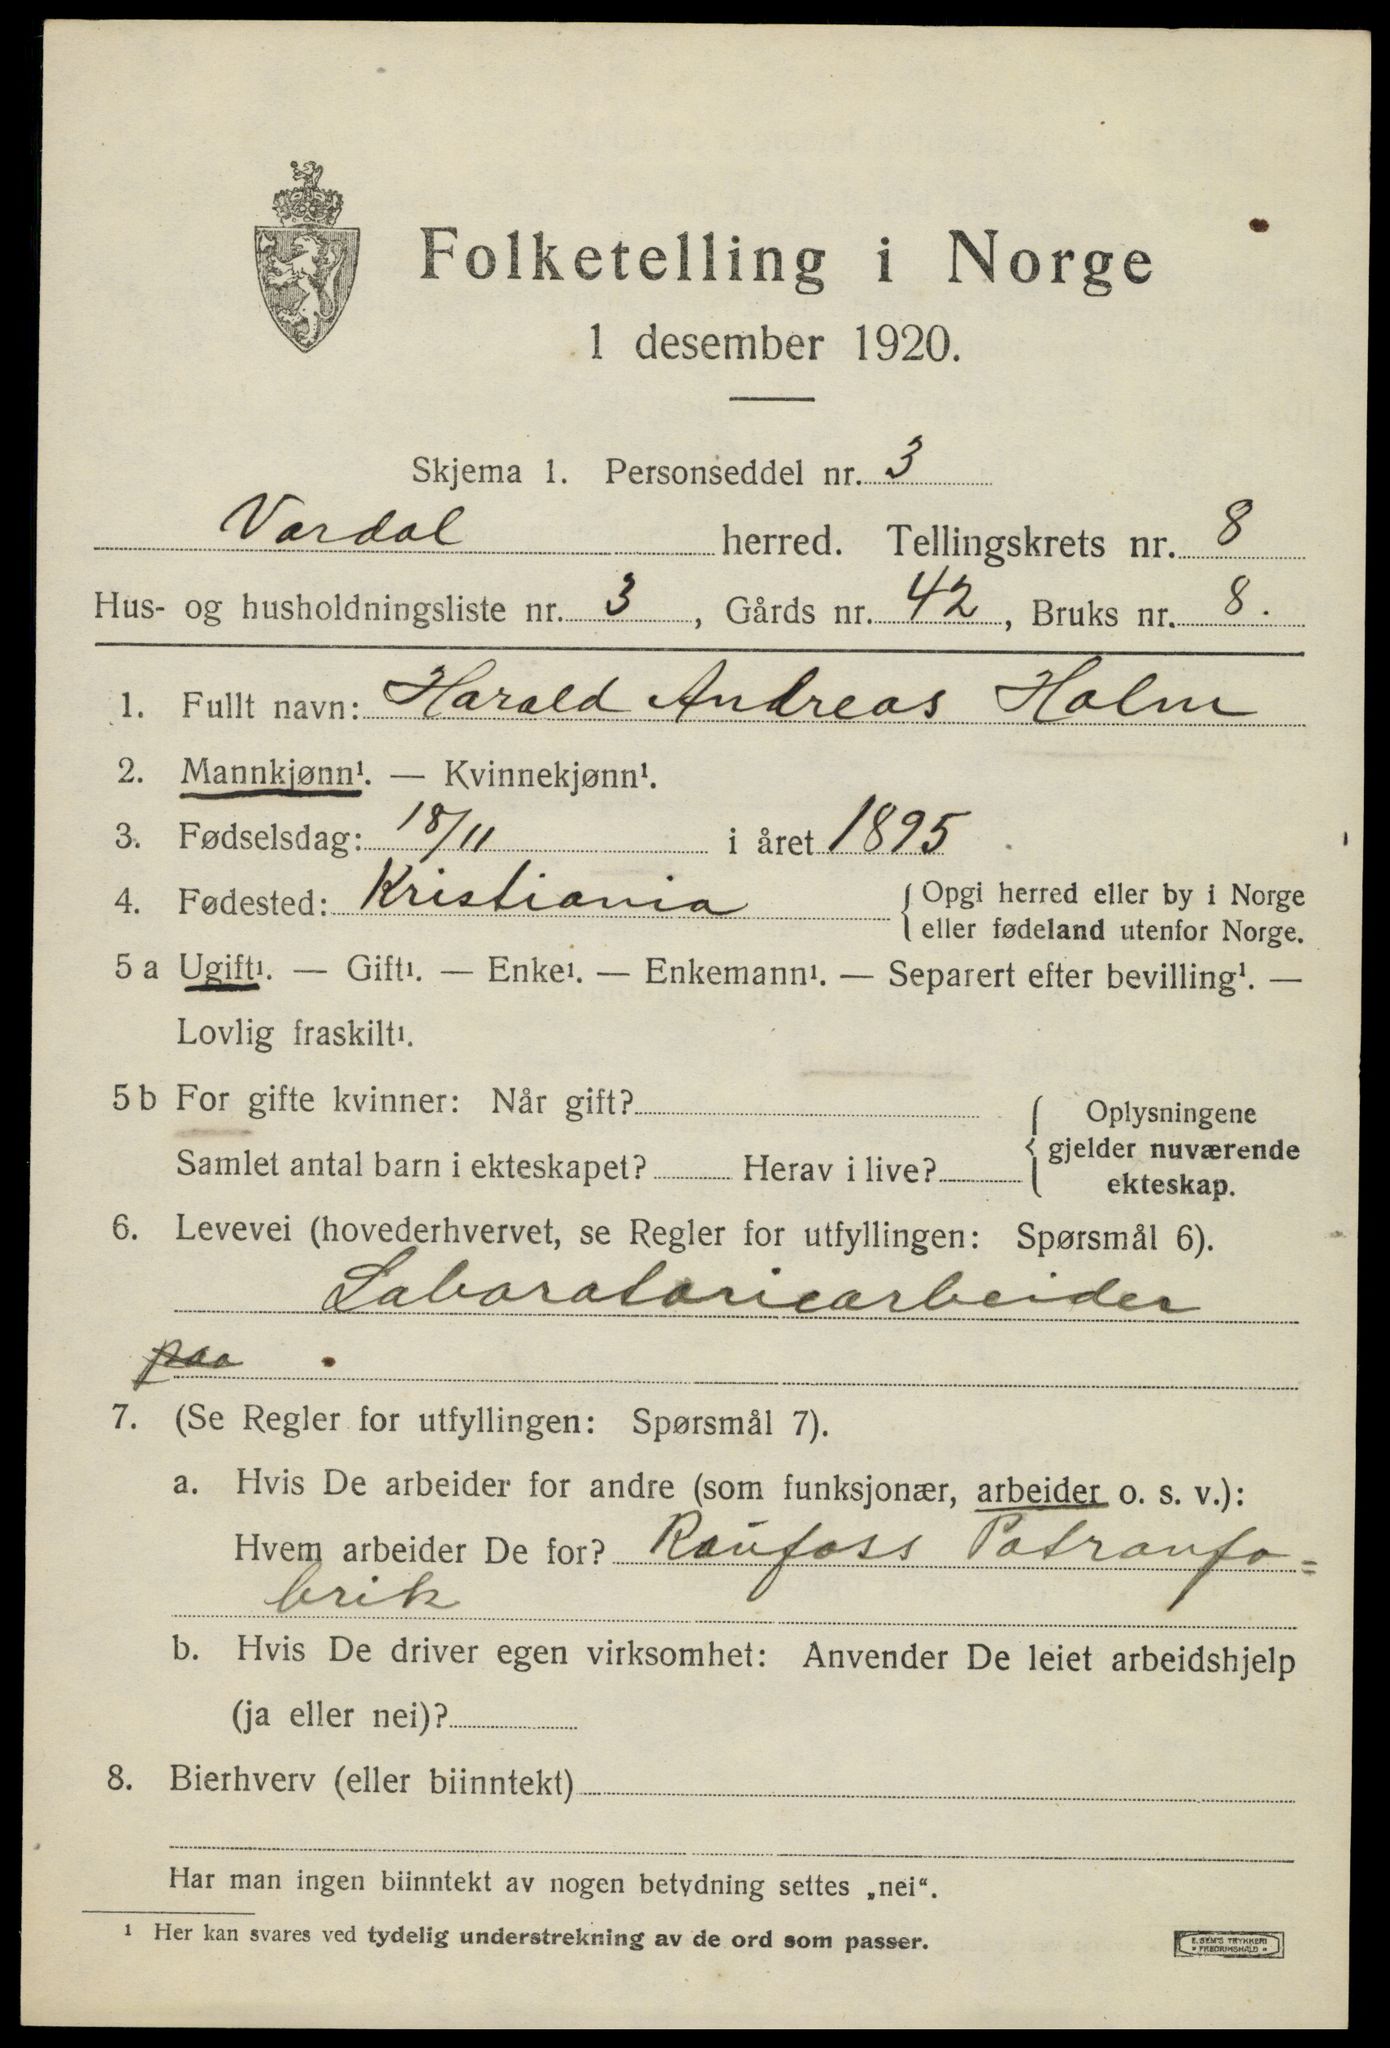 Folketelling i Norge
1 desember 1920.
Skjema 1. Personseddel nr. 3
Vardal herred. Tellingskrets nr. 8
Hus- og husholdningsliste nr. 3, Gårds nr. 42, Bruks nr. 8.
1. Fullt navn: Harald Andreas Holm
2. Mannkjønn¹. — Kvinnekjønn¹.
3. Fødselsdag: 18/11 i året 1895
4. Fødested: Kristiania { Opgi herred eller by i Norge
eller fødeland utenfor Norge.
5 a Ugift¹. — Gift¹. — Enke¹. — Enkemann¹. — Separert efter bevilling¹. —
Lovlig fraskilt¹.
5 b For gifte kvinner: Når gift? { Oplysningene
gjelder nuværende
Samlet antal barn i ekteskapet? Herav i live?
ekteskap.
6. Levevei (hovederhvervet, se Regler for utfyllingen: Spørsmål 6).
Laboratoriearbeider
paa
7. (Se Regler for utfyllingen: Spørsmål 7).
a. Hvis De arbeider for andre (som funksjonær, arbeider o. s. v.):
Hvem arbeider De for? Raufoss Patronfa=
brik
b. Hvis De driver egen virksomhet: Anvender De leiet arbeidshjelp
(ja eller nei)?
8. Bierhverv (eller biinntekt)
Har man ingen biinntekt av nogen betydning settes „nei“.
¹ Her kan svares ved tydelig understrekning av de ord som passer.
E. SEM'S TRYKKERI
* FREDRIKSHALD *